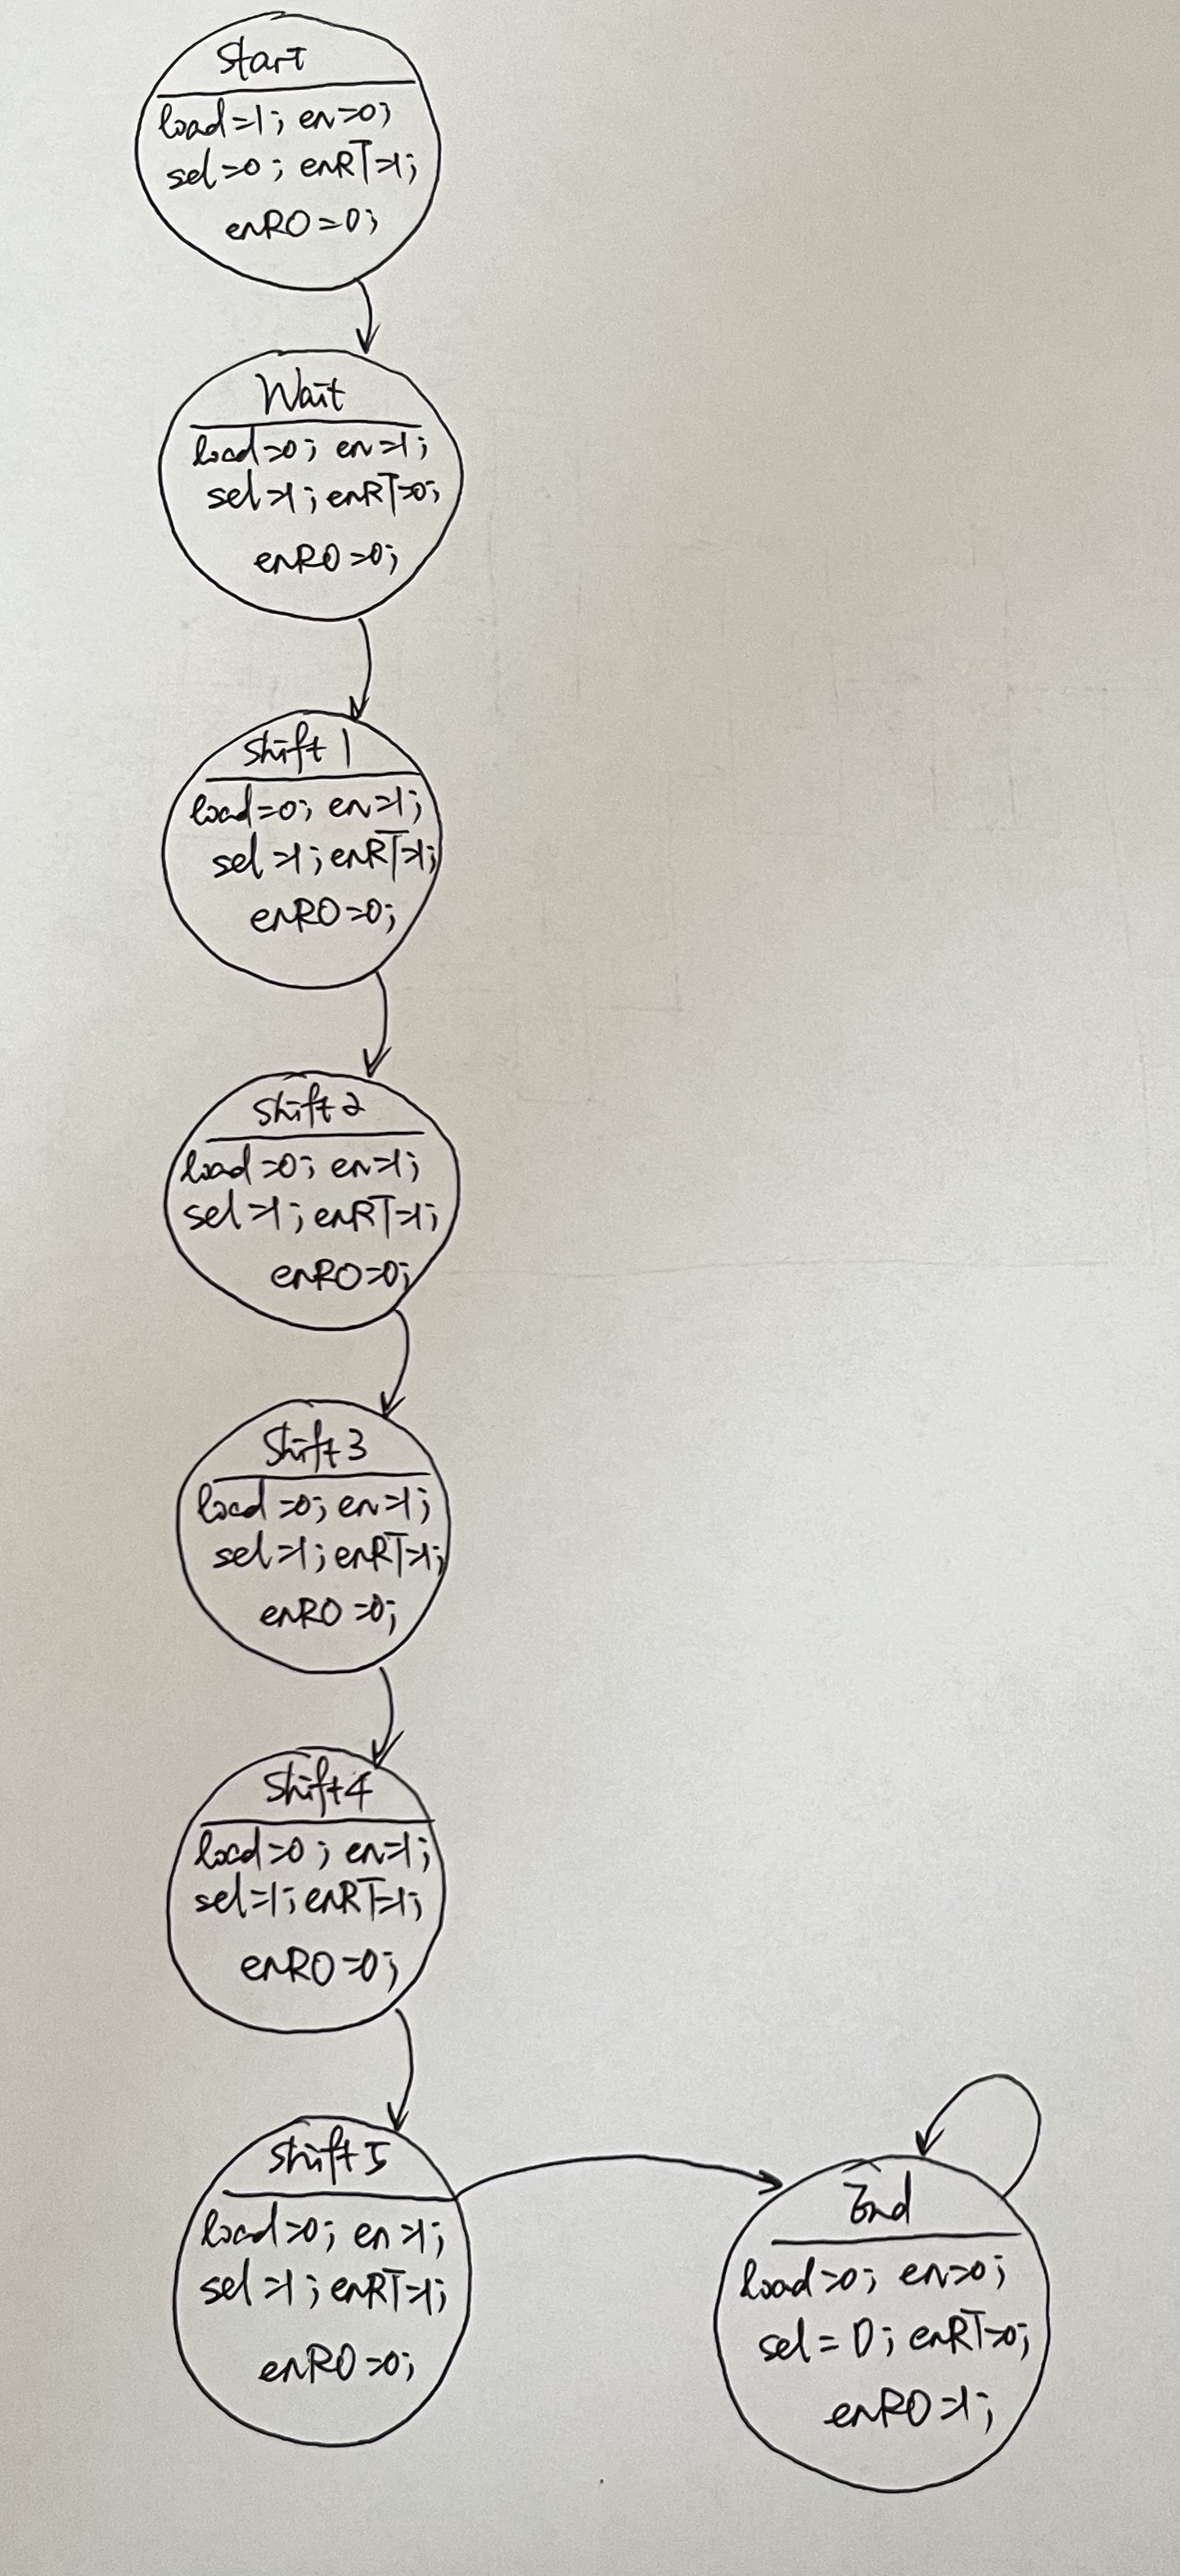 Start
load=1; en=0;
sel=0; enRT=1;
enRO=0;
Wait
load=0; en=1;
sel=1; enRT=0;
enRO=0;
Shift 1
load=0; en=1;
sel=1; enRT=1;
enRO=0;
Shift 2
load=0; en=1;
sel=1; enRT=1;
enRO=0;
Shift 3
load=0; en=1;
sel=1; enRT=1;
enRO=0;
Shift 4
load=0; en=1;
sel=1; enRT=1;
enRO=0;
Shift 5
load=0; en=1;
sel=1; enRT=1;
enRO=0;
End
load=0; en=0;
sel=0; enRT=0;
enRO=1;